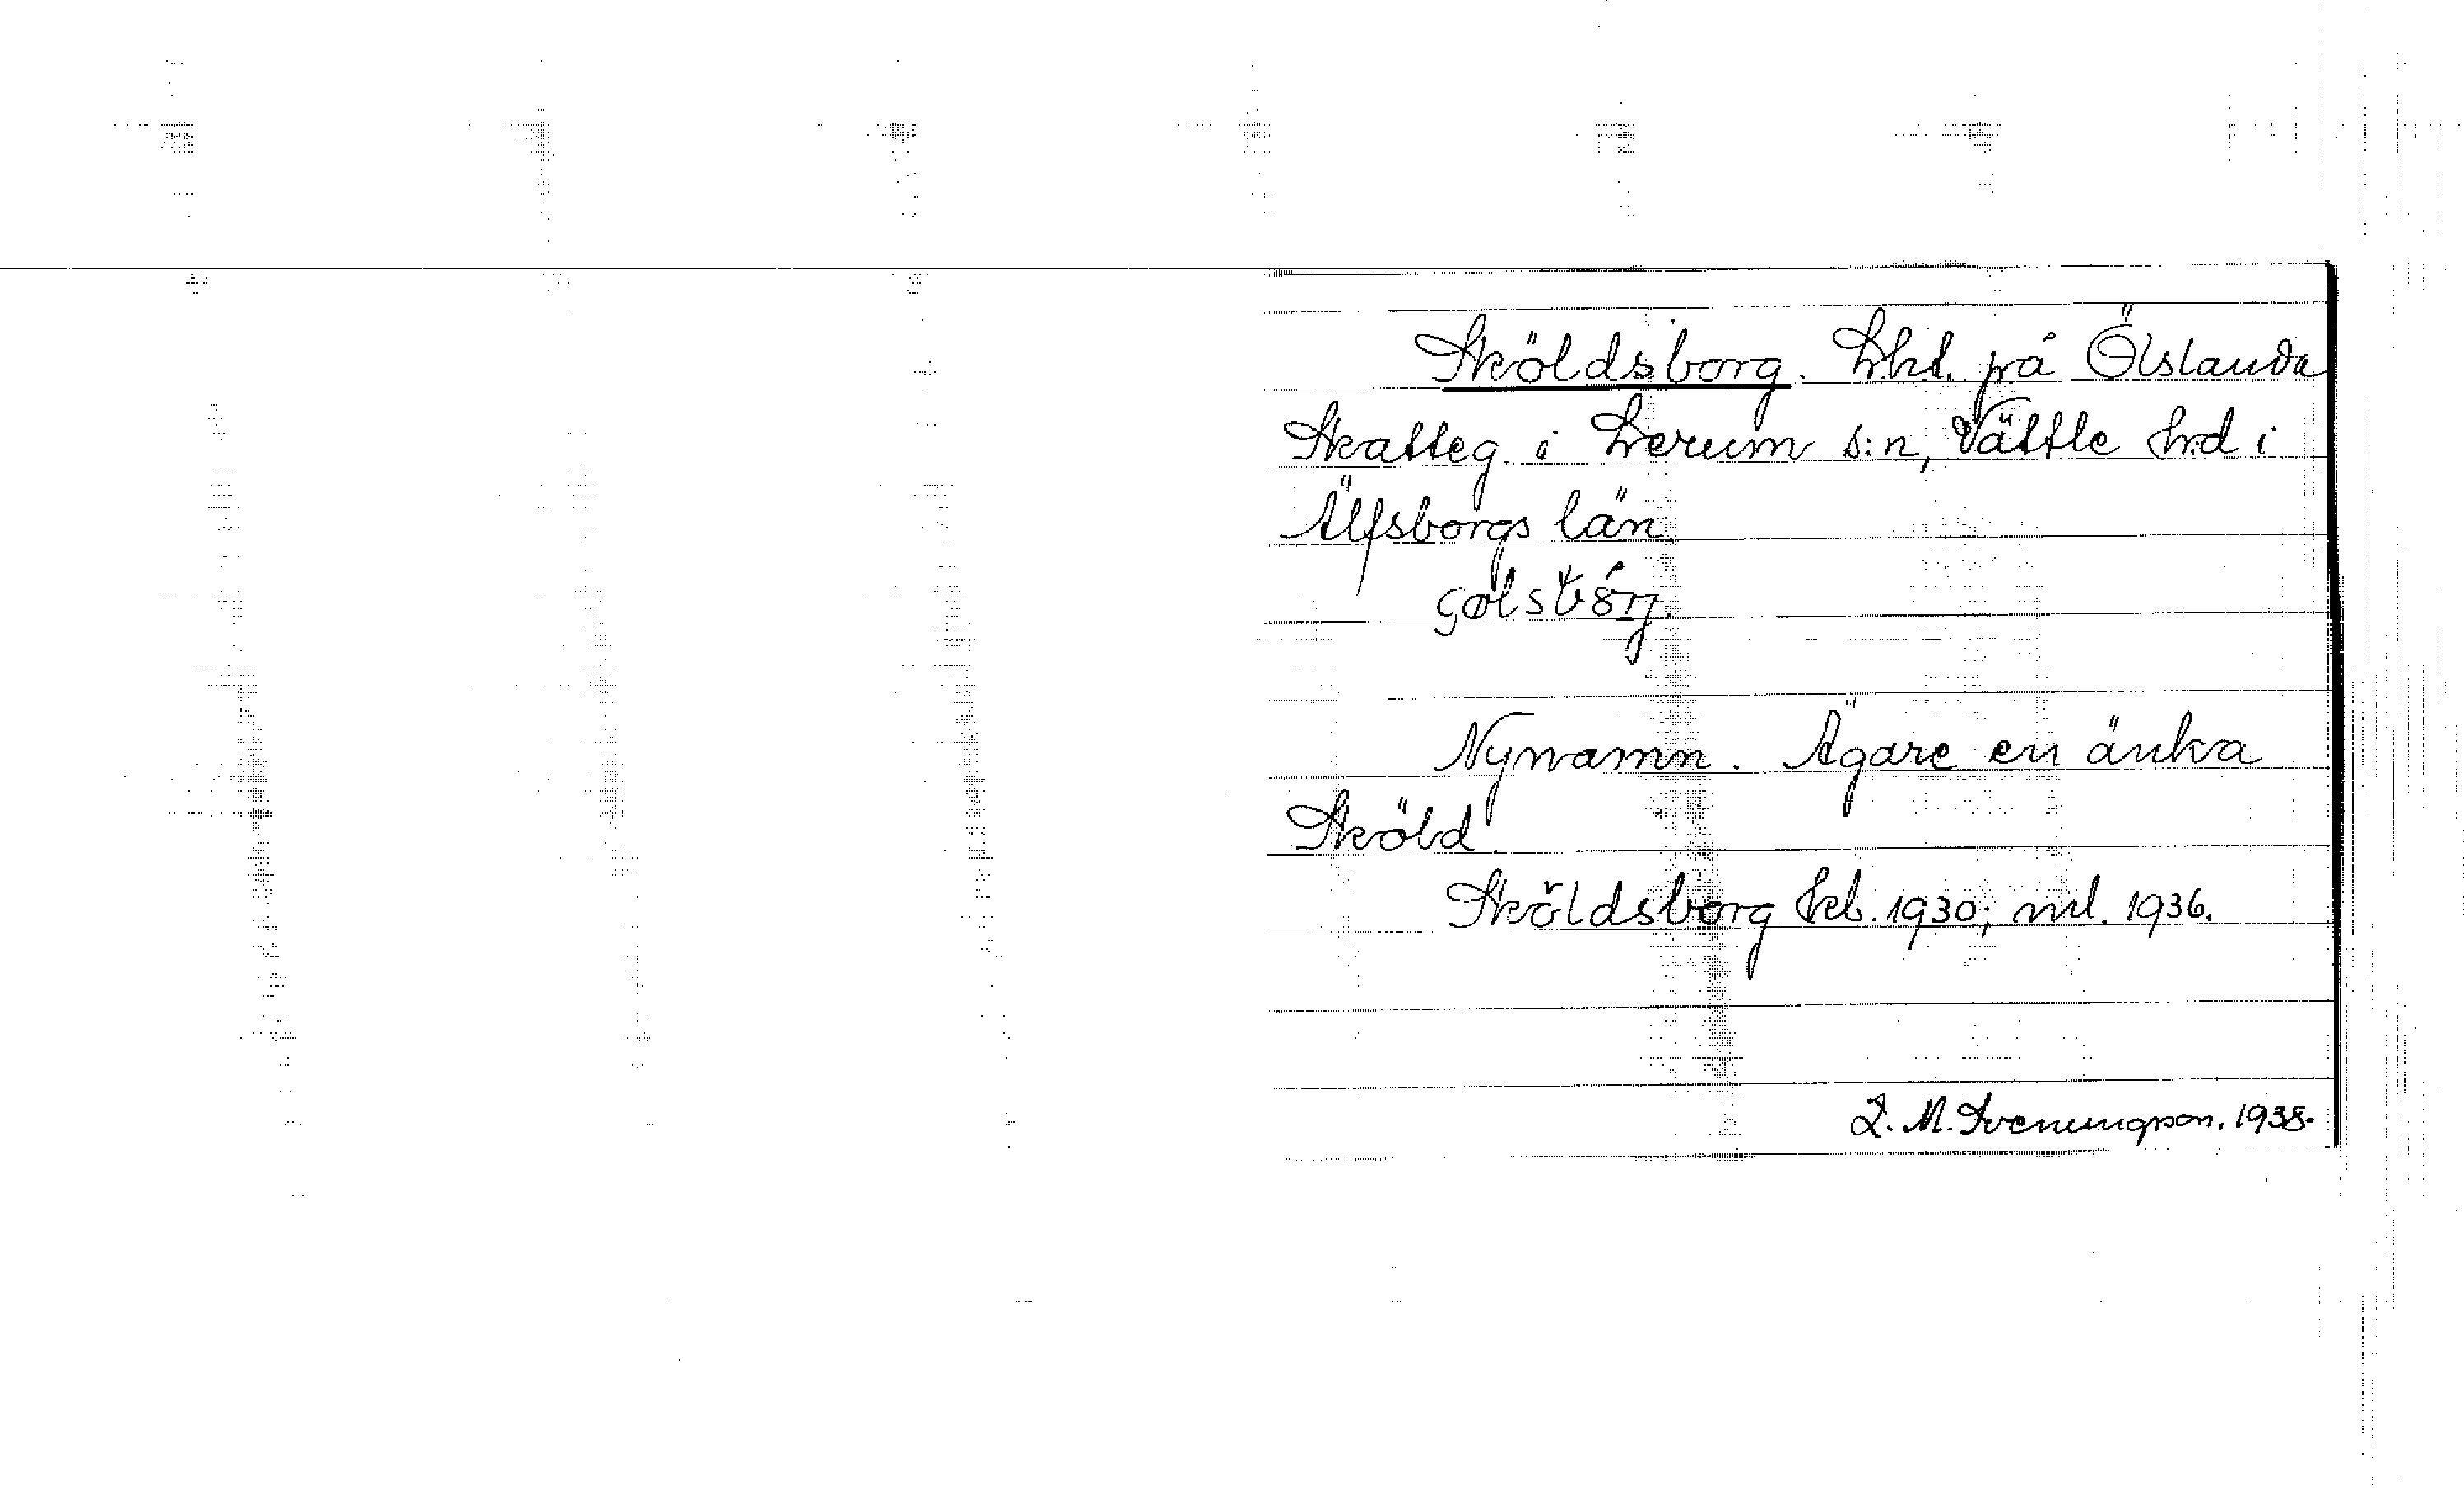 Sköldsborg. Lht. på Ölslanda
Skatteg. i Lerum s:n, Vättle hd i
Älfsborgs län.
Nynamn. Ägare en änka
Sköld.
Sköldsborg kb. 1930; ml. 1936.
L. M. Svenungson. 1938.